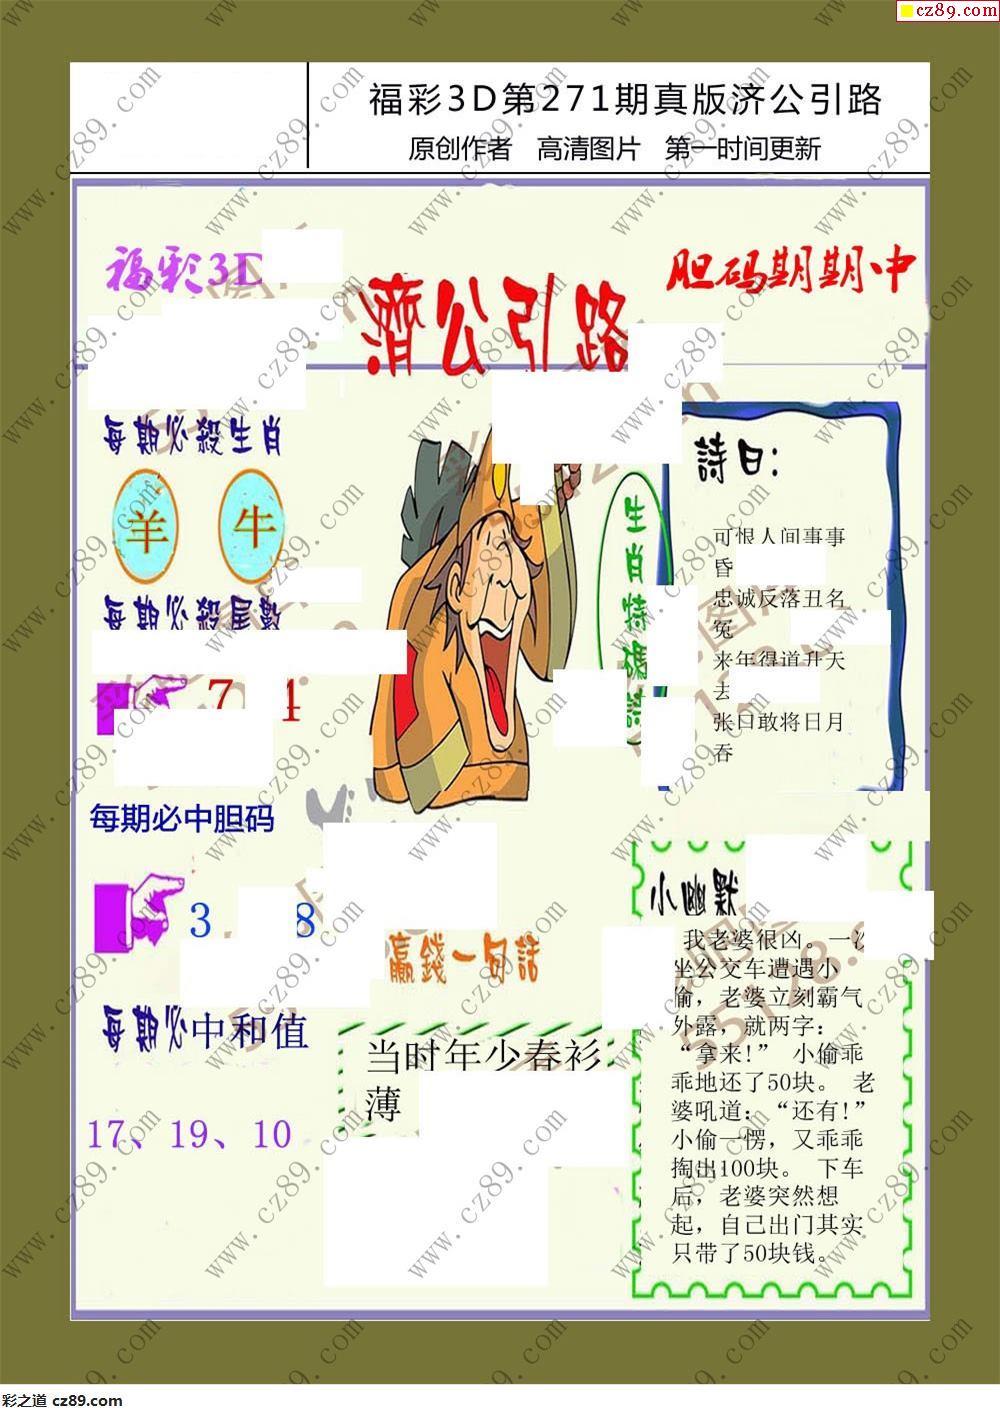 cz89.com
福彩3D第271期真版济公引路
原创作者 高清图片 第一时间更新
福彩3D
胆码期期中
濟公引路
每期必殺生肖
羊 牛
每期必殺尾數
7 4
每期必中胆码
3 8
每期必中和值
17、19、10
生肖特碼詩
詩曰：
可恨人间事事
昏
忠诚反落丑名
冤
来年得道升天
去
张口敢将日月
吞
赢錢一句話
当时年少春衫
薄
小幽默
我老婆很凶。一次
坐公交车遭遇小
偷，老婆立刻霸气
外露，就两字：
“拿来!” 小偷乖
乖地还了50块。 老
婆吼道：“还有!”
小偷一愣，又乖乖
掏出100块。 下车
后，老婆突然想
起，自己出门其实
只带了50块钱。
www.cz89.com
彩之道 cz89.com